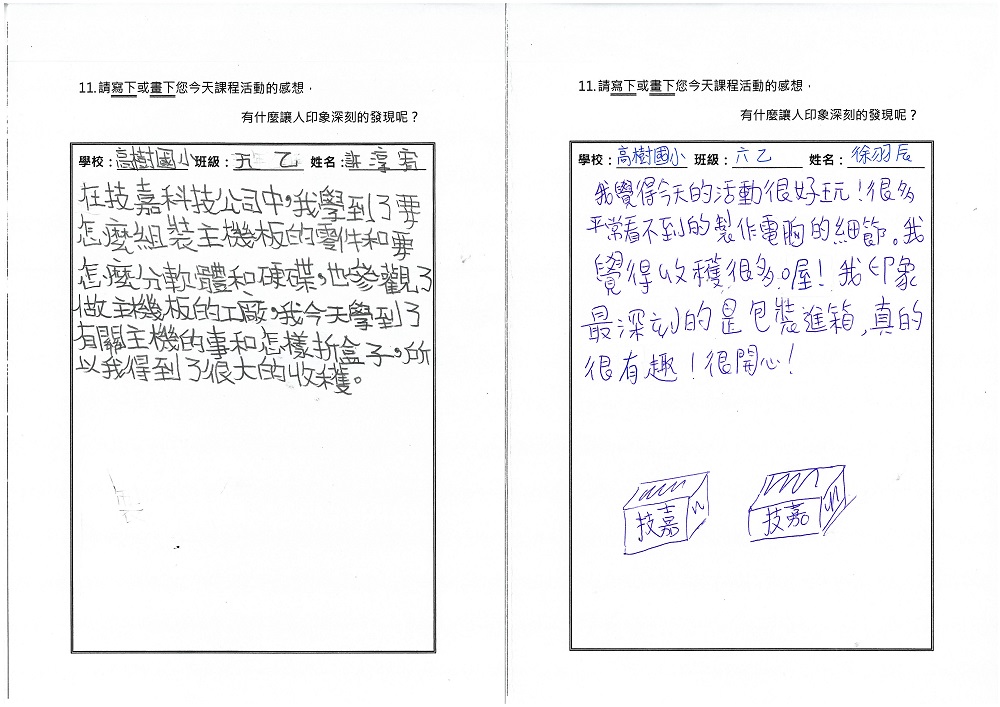 11.請寫下或畫下您今天課程活動的感想，
有什麼讓人印象深刻的發現呢？
學校：高樹國小 班級：五 乙 姓名：謝享宥
在技嘉科技公司中，我學到了要
怎麼組裝主機板的零件和要
怎麼分軟體和硬碟，也參觀了
做主機板的工廠，我今天學到了
有關主機的事和怎樣折盒子，所
以我得到了很大的收穫。
11.請寫下或畫下您今天課程活動的感想，
有什麼讓人印象深刻的發現呢？
學校：高樹國小 班級：六乙 姓名：徐羽辰
我覺得今天的活動很好玩！很多
平常看不到的製作電腦的細節。我
覺得收穫很多喔！我印象
最深刻的是包裝進箱，真的
很有趣！很開心！
技嘉 技嘉